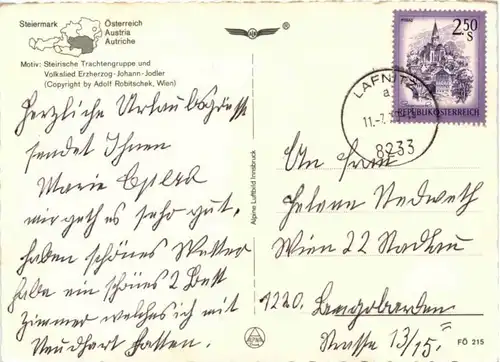 Steiermark
Österreich
Austria
Autriche
Motiv: Steirische Trachtengruppe und
Volkslied Erzherzog-Johann-Jodler
(Copyright by Adolf Robitschek, Wien)
Herzliche Urlaubsgrüsse
sendet Ihnen
Marie
mir geth es sehr gut,
haben schönes Wetter
habe ein schönes 2 Bett
Zimmer welches ich mit
Alpine Luftbild Innsbruck
2.50
S
REPUBLIK ÖSTERREICH
LAFNITZ
a
11.-7.
8233
An Frau
Helene Nedweth
Wien 22 Stadlau
1220. Langobarden
Strasse 13/15
FÖ 215